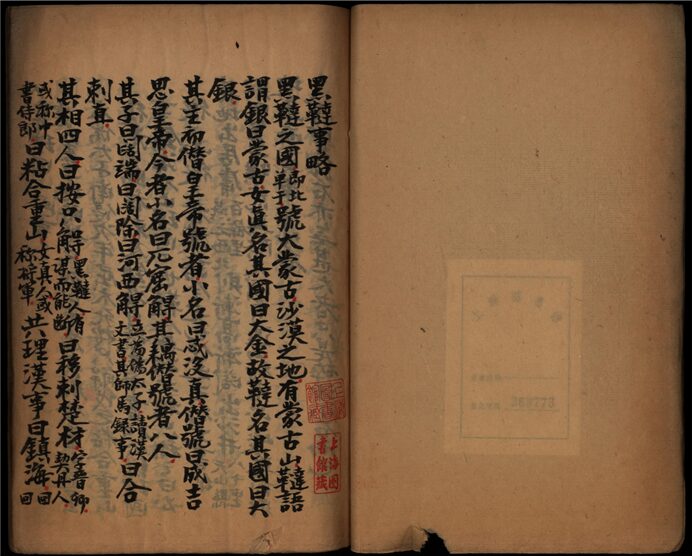 黑韃事略
黑韃之國即北單于號大蒙古沙漠之地有蒙古山韃語
謂銀曰蒙古女真名其國曰大金故韃名其國曰大
銀
其主初僭皇帝號者小名曰忒没真僭號曰成吉
思皇帝今者小名曰兀窟䚟其耦僭號者八人
其子曰闊端曰闊除曰河西䚟立為偽太子讀漢文書其師馬録事曰合
剌直
其相四人曰按只䚟黑韃人有謀而能斷曰移剌楚材字晉卿契丹人
或稱中書侍郎曰粘合重山女真人或稱將軍共理漢事曰鎮海回
上海圖書館藏
369773